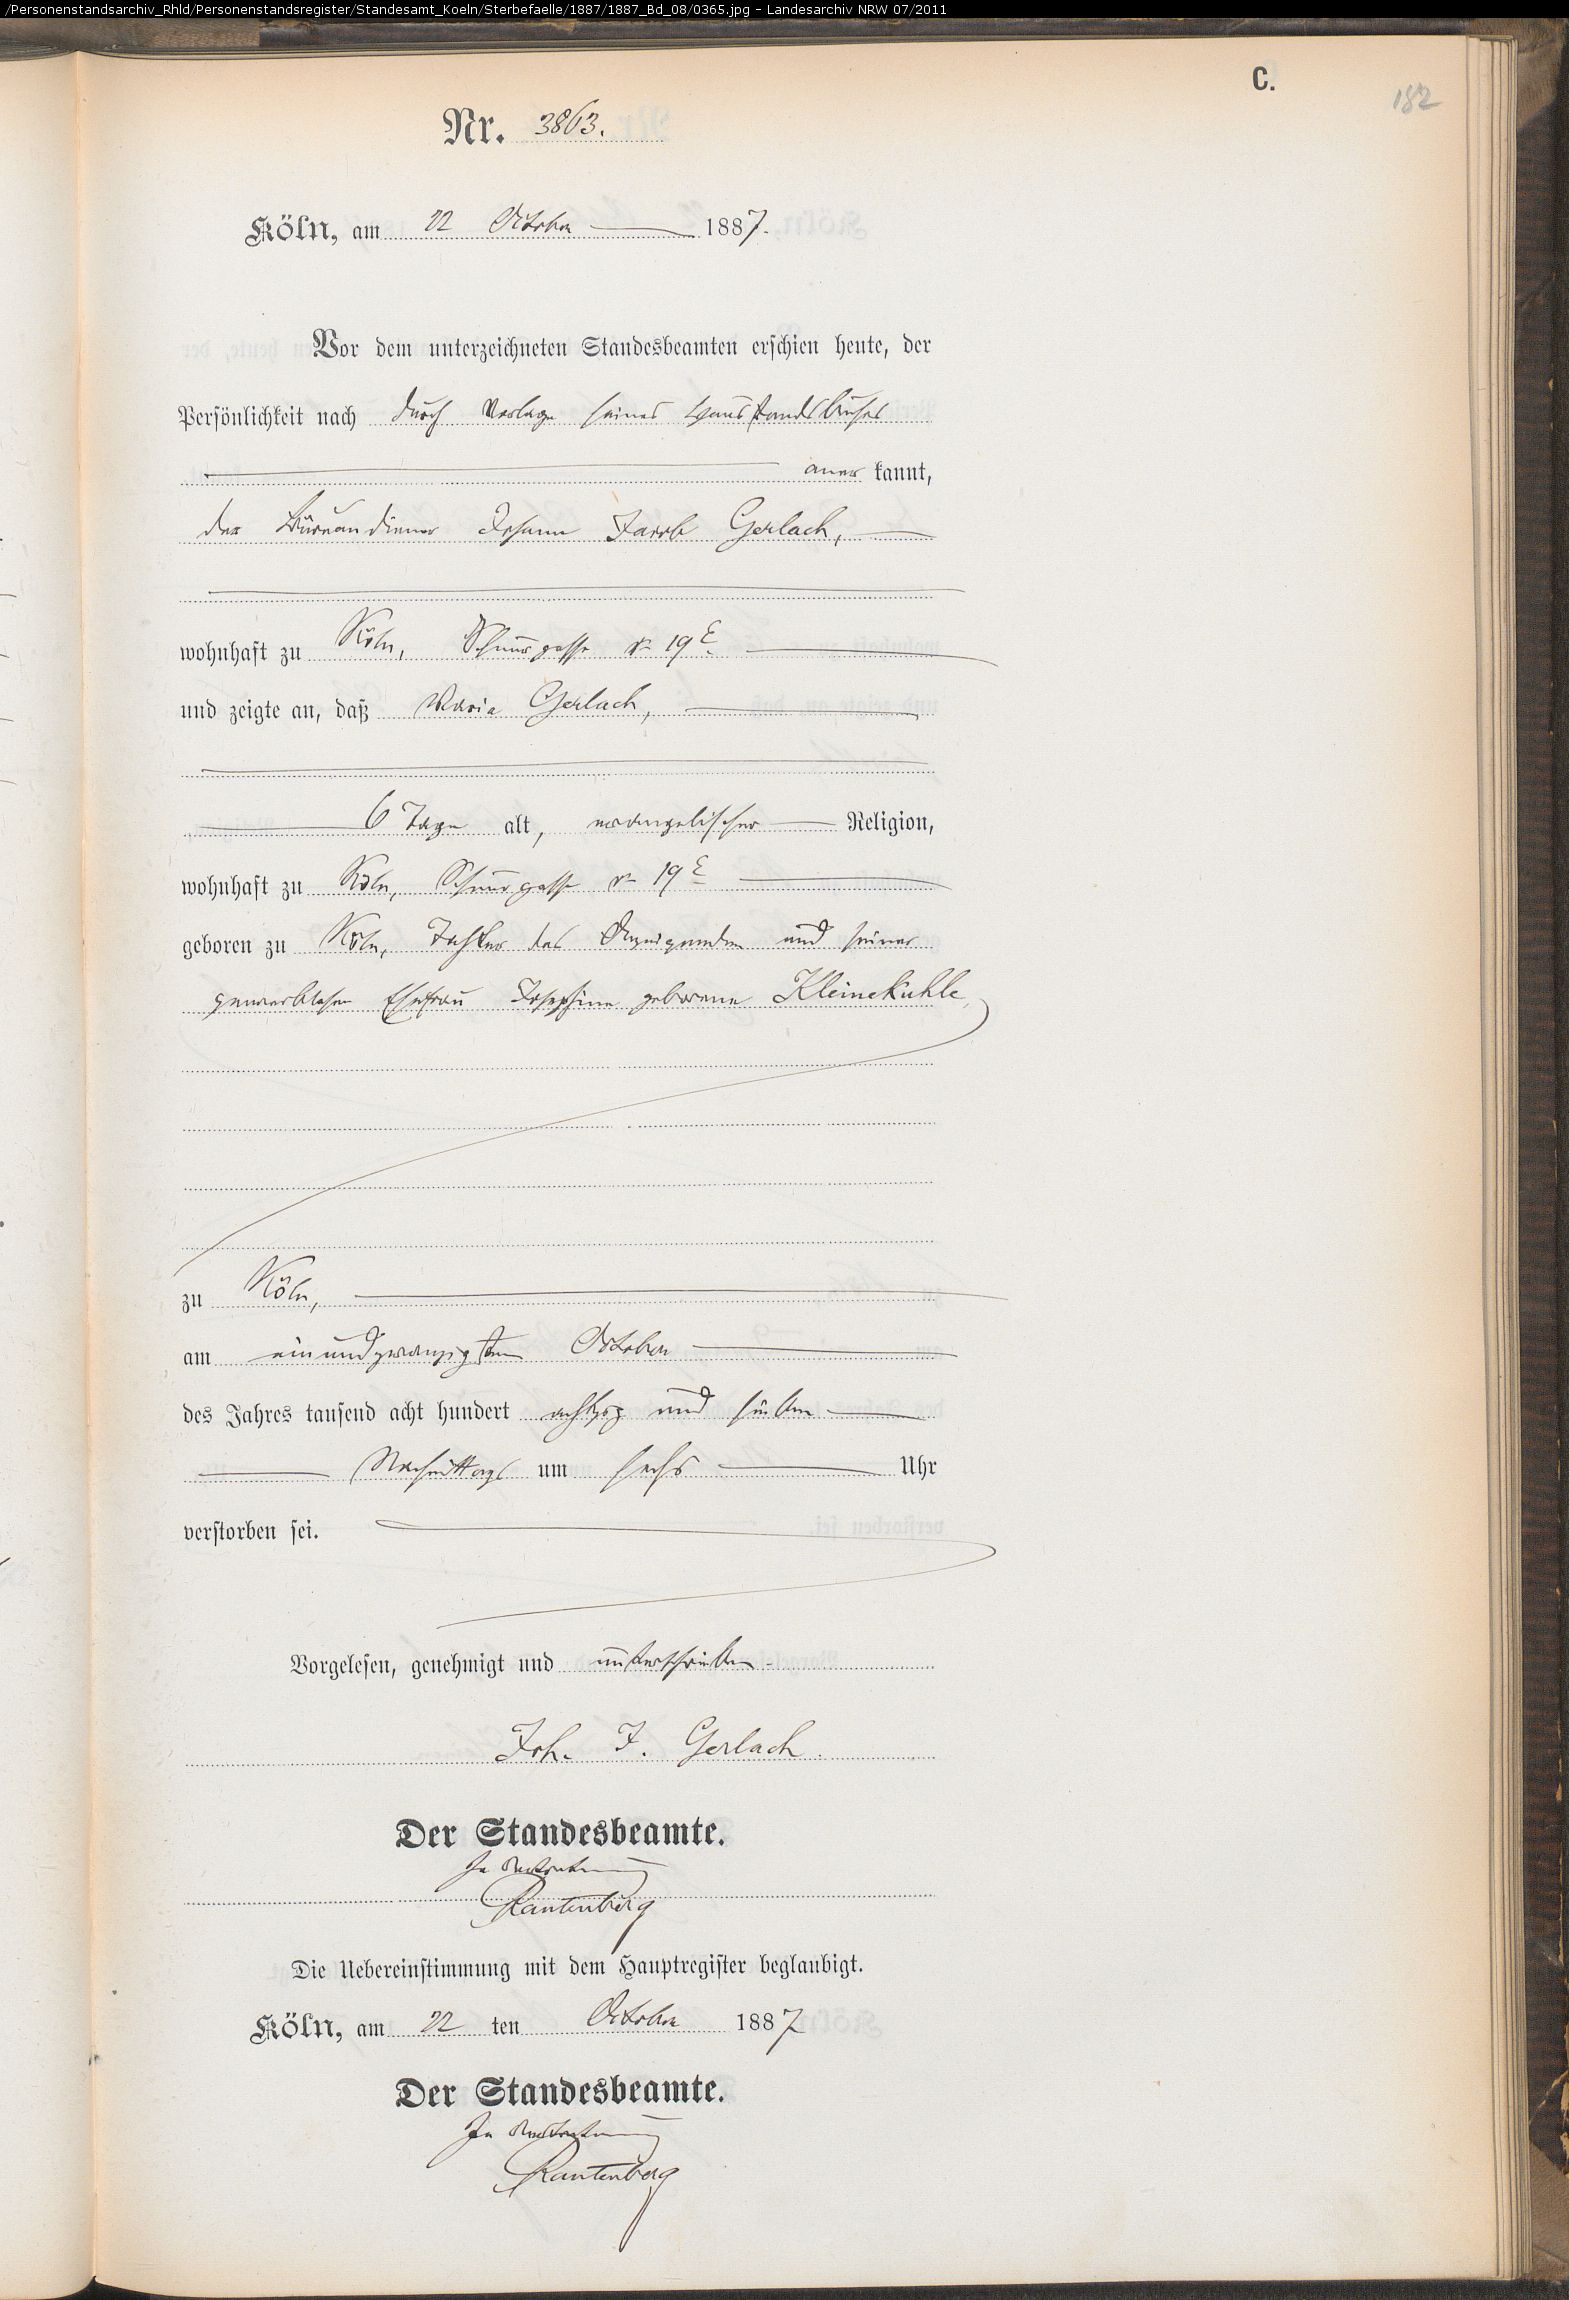 /Personenstandsarchiv_Rhld/Personenstandsregister/Standesamt_Koeln/Sterbefaelle/1887/1887_Bd_08/0365.jpg - Landesarchiv NRW 07/2011
C.
182
Nr. 3863.
Köln, am 22 October 1887.
Vor dem unterzeichneten Standesbeamten erschien heute, der
Persönlichkeit nach durch Vorlage seines
aner kannt,
der Büreaudiener Johann Jacob Gerlach,
wohnhaft zu Köln, Schnurgasse No 19 E
und zeigte an, daß Maria Gerlach,
6 Tage alt, evangelischer Religion,
wohnhaft zu Köln, Schnurgasse No 19 E
geboren zu Köln, Tochter des Anzeigenden und seiner
gewerblosen Ehefrau Josephine geborene Kleinekuhle,
zu Köln,
am einundzwanzigsten October
des Jahres tausend acht hundert achtzig und sieben
Nachmittags um sechs Uhr
verstorben sei.
Vorgelesen, genehmigt und unterschrieben.
Joh. J. Gerlach.
Der Standesbeamte.
In Vertretung
Rautenberg
Die Uebereinstimmung mit dem Hauptregister beglaubigt.
Köln, am 22 ten October 1887
Der Standesbeamte.
In Vertretung
Rautenberg